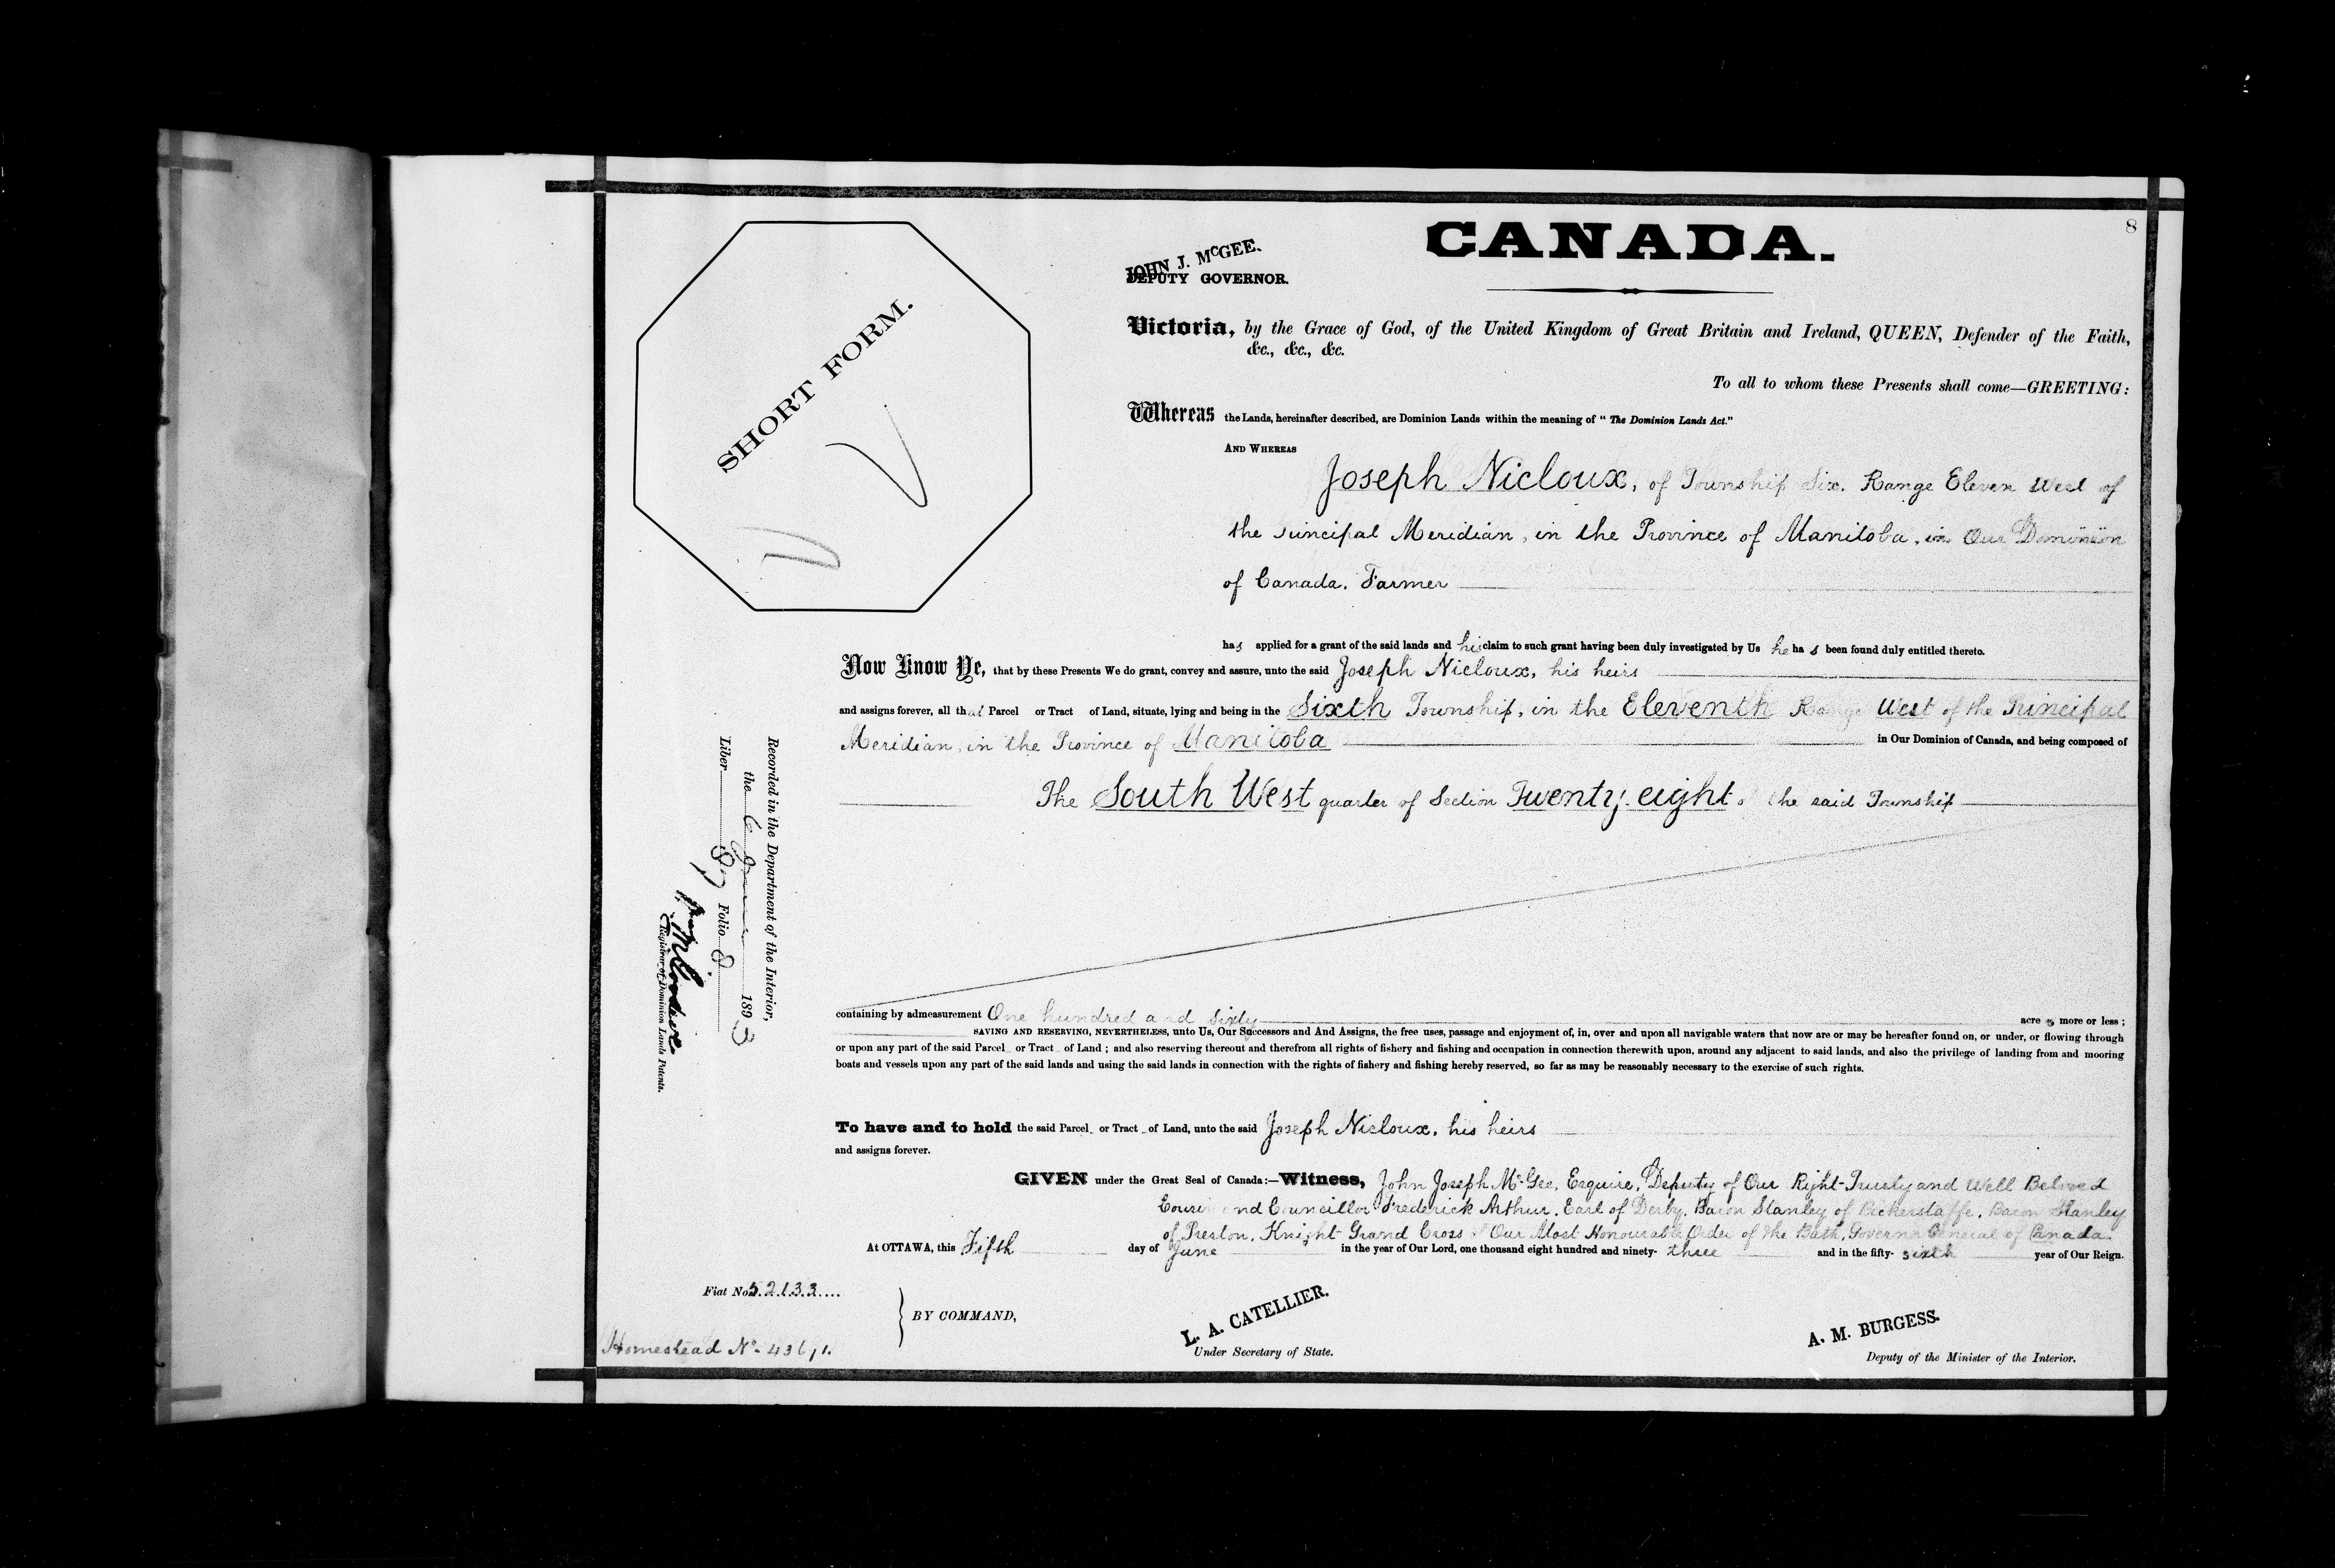 8
CANADA.
JOHN J. McGEE.
DEPUTY GOVERNOR.
SHORT FORM.
Victoria, by the Grace of God, of the United Kingdom of Great Britain and Ireland, QUEEN, Defender of the Faith,
&c., &c., &c.
To all to whom these Presents shall come—GREETING:
Whereas the Lands, hereinafter described, are Dominion Lands within the meaning of "The Dominion Lands Act."
AND WHEREAS
Joseph Nicloux, of Township Six, Range Eleven West of
the Principal Meridian, in the Province of Manitoba, in Our Dominion
of Canada, Farmer
has applied for a grant of the said lands and his claim to such grant having been duly investigated by Us he has been found duly entitled thereto.
Now Know Ye, that by these Presents We do grant, convey and assure, unto the said Joseph Nicloux, his heirs
and assigns forever, all that Parcel or Tract of Land, situate, lying and being in the Sixth Township, in the Eleventh Range West of the Principal
Meridian, in the Province of Manitoba in Our Dominion of Canada, and being composed of
The South West quarter of Section Twenty eight of the said Township
containing by admeasurement One hundred and sixty acres more or less;
SAVING AND RESERVING, NEVERTHELESS, unto Us, Our Successors and And Assigns, the free uses, passage and enjoyment of, in, over and upon all navigable waters that now are or may be hereafter found on, or under, or flowing through
or upon any part of the said Parcel or Tract of Land; and also reserving thereout and therefrom all rights of fishery and fishing and occupation in connection therewith upon, around any adjacent to said lands, and also the privilege of landing from and mooring
boats and vessels upon any part of the said lands and using the said lands in connection with the rights of fishery and fishing hereby reserved, so far as may be reasonably necessary to the exercise of such rights.
To have and to hold the said Parcel or Tract of Land, unto the said Joseph Nicloux, his heirs
and assigns forever.
GIVEN under the Great Seal of Canada:—Witness, John Joseph McGee, Esquire, Deputy of Our Right-Trusty and Well Beloved
Cousin and Councillor Frederick Arthur, Earl of Derby, Baron Stanley of Bickerstaffe, Baron Stanley
of Preston, Knight Grand Cross of Our Most Honourable Order of the Bath, Governor General of Canada.
At OTTAWA, this Fifth day of June in the year of Our Lord, one thousand eight hundred and ninety-three and in the fifty-sixth year of Our Reign.
Fiat No. 52133
BY COMMAND,
L. A. CATELLIER.
Under Secretary of State.
A. M. BURGESS.
Deputy of the Minister of the Interior.
Homestead No.
Recorded in the Department of the Interior,
the 6 June 1893
Liber 87 Folio 8
Registrar of Dominion Lands Patents.